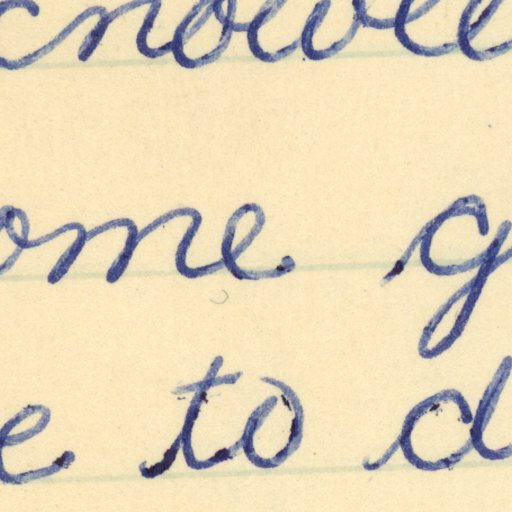 knowle
ome g
e to d